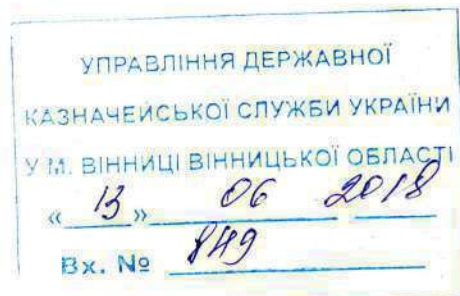 УПРАВЛІННЯ ДЕРЖАВНОЇ
КАЗНАЧЕЙСЬКОЇ СЛУЖБИ УКРАЇНИ
У М. ВІННИЦІ ВІННИЦЬКОЇ ОБЛАСТІ
«13» 06 2018
Вх. № 849